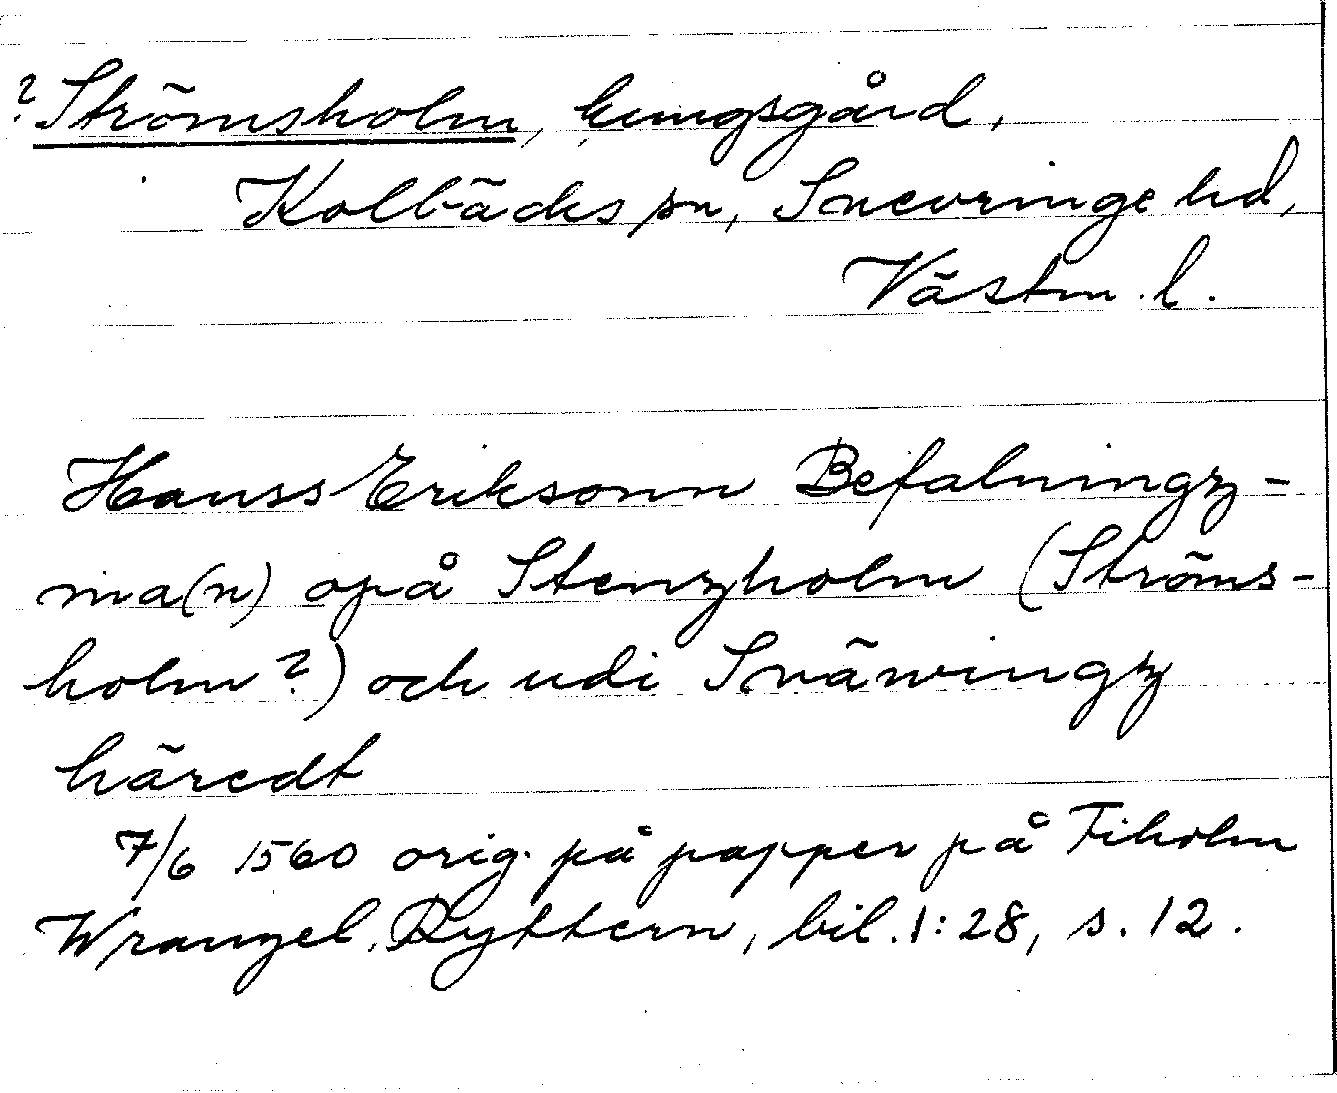 ? Strömsholm, kungsgård,
Kolbäcks sn, Snevringe hd,
Västm. l.
Hanss Eriksonn Befalningz-
ma(n) opå Stenzholm (Ströms-
holm?) och udi Snäwingz
häredt
7/6 1560 orig. på papper på Fiholm
Wrangel, Ryttern, bil. 1:28, s. 12.